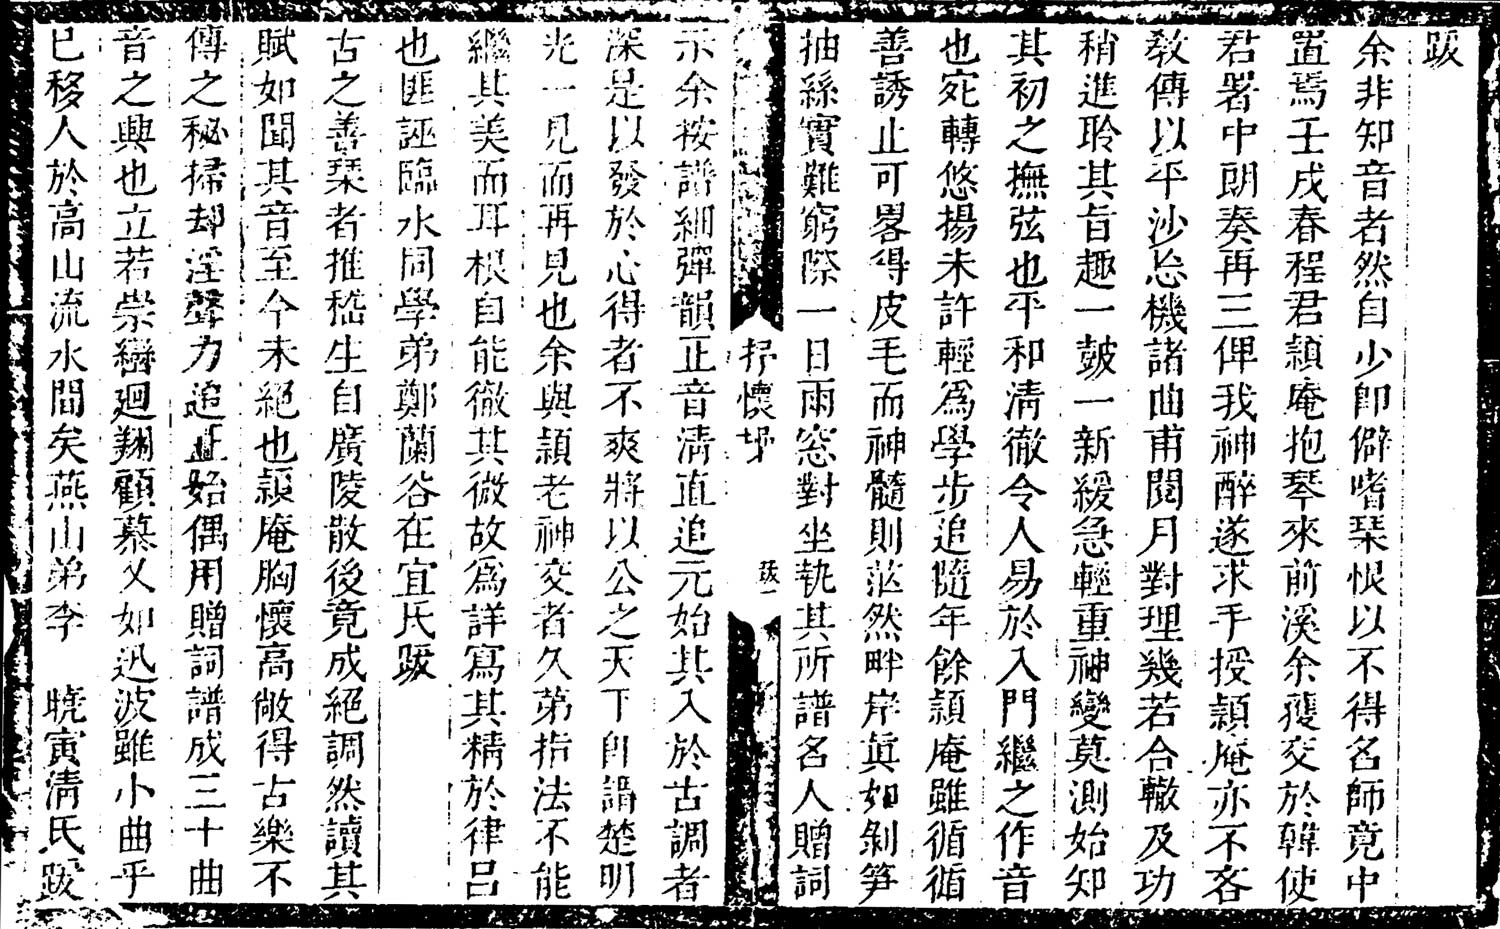 跋
余非知音者然自少卽僻嗜琹恨以不得名師竟中
置焉壬戌春程君頴庵抱琴來前溪余獲交於韓使
君署中朗奏再三俾我神醉遂求手授頴庵亦不吝
敎傳以平沙忘機諸曲甫閱月對理幾若合轍及功
稍進聆其旨趣一皷一新緩急輕重神變莫測始知
其初之撫弦也平和淸徹令人易於入門繼之作音
也宛轉悠揚未許輕爲學步追隨年餘頴庵雖循循
善誘止可畧得皮毛而神髓則茫然畔岸眞如剝笋
抽絲實難窮際一日雨窓對坐執其所譜名人贈詞
抒懷操
跋一
示余按譜細彈韻正音淸直追元始其入於古調者
深是以發於心得者不爽將以公之天下卽謂楚明
光一見而再見也余與頴老神交者久第指法不能
繼其美而耳根自能徹其微故爲詳寫其精於律呂
也匪誣臨水同學弟鄭蘭谷在宜氏跋
古之善琹者推嵇生自廣陵散後竟成絕調然讀其
賦如聞其音至今未絕也頴庵胸懷高敞得古樂不
傳之秘掃却淫聲力追正始偶用贈詞譜成三十曲
音之興也立若崇巒廻翔顧慕又如迅波雖小曲乎
已移人於高山流水間矣燕山弟李　曉寅淸氏跋